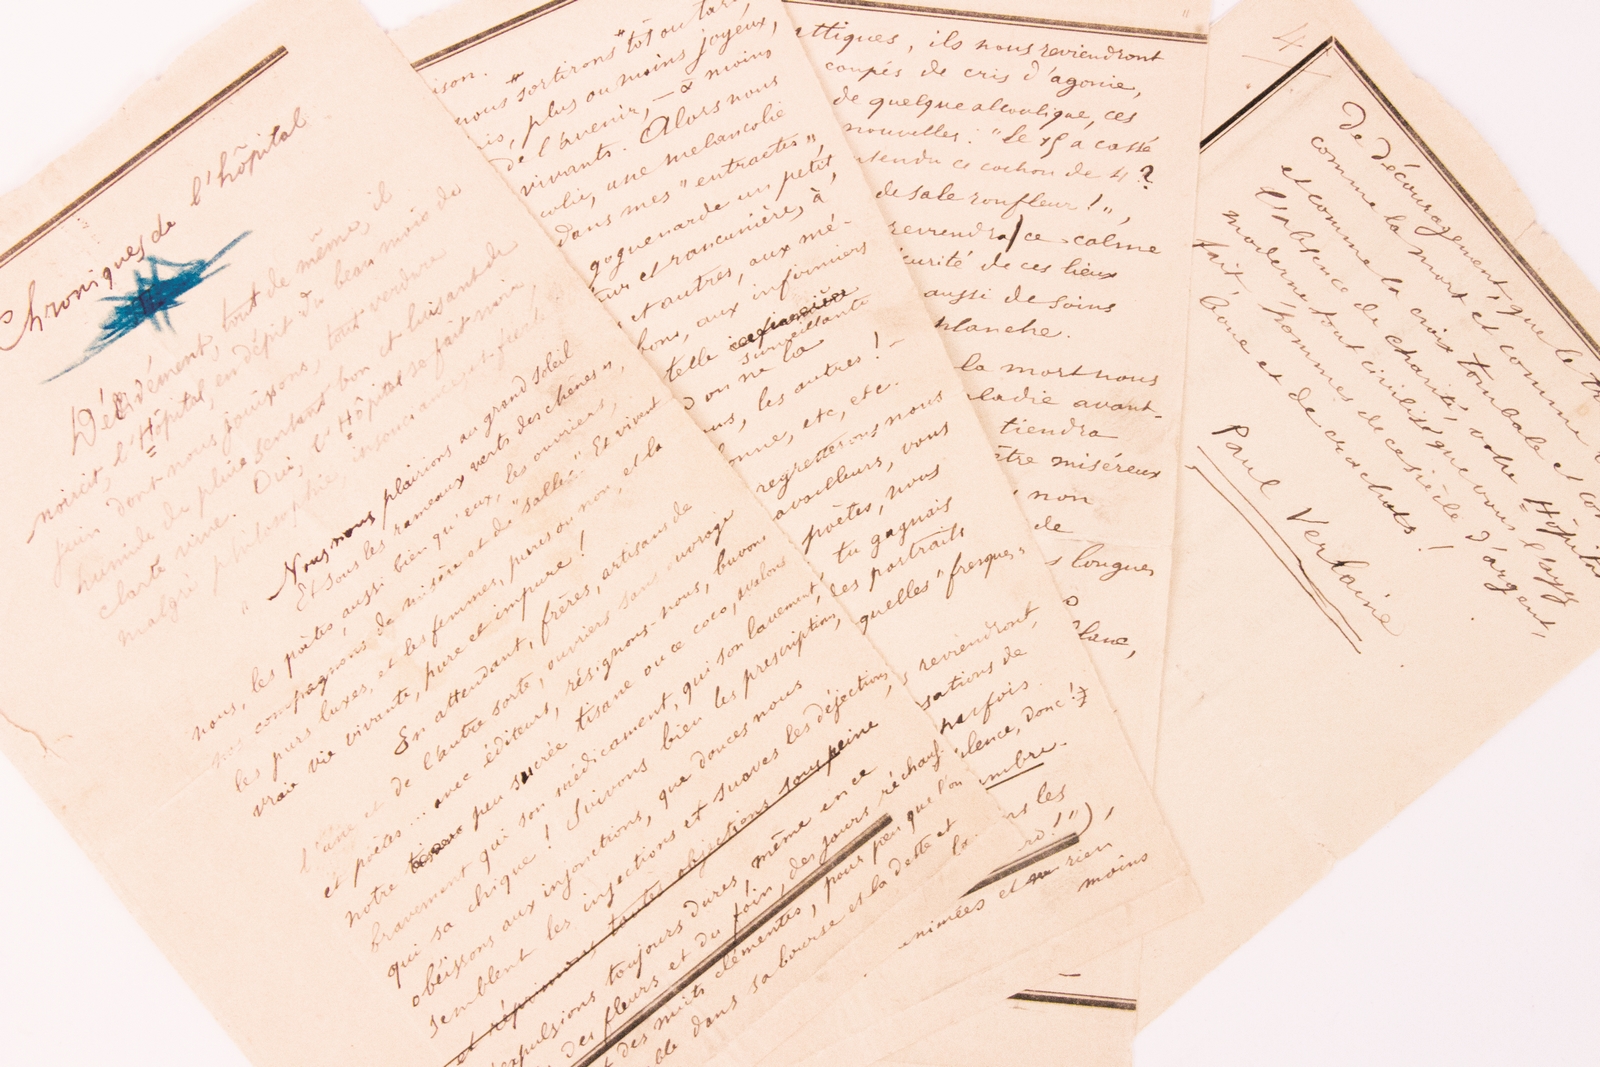 Chroniques de l'hôpital
Décidément, tout de même, il
noircit, l'Hôpital, en dépit du beau mois de
juin dont nous jouissons, tout verdure
humide de pluie sentant bon et luisant de
clarté vive. Oui, l'Hôpital se fait noir,
malgré philosophie, insouciance et fierté.
" Nous nous plairions au grand soleil
Et sous les rameaux verts des chênes ",
nous, les poètes, aussi bien qu'eux, les ouvriers,
nos compagnons de misère et de "salle". Et vivent
les purs luxes, et les femmes, pures ou non, et la
vraie vie vivante, pure et impure !
En attendant, frères, artisans de
l'une et de l'autre sorte, ouvriers sans ouvrage
et poètes... avec éditeurs, résignons-nous, buvons
notre peu sucrée tisane ou ce coco, avalons
bravement qui son médicament, qui son lavement,
qui sa chique ! Suivons bien les prescriptions,
obéissons aux injonctions, que douces nous
semblent les injections et suaves les déjections
et réprimons toutes objections sous peine
d'expulsions toujours dures, même en ce
des fleurs et du foin, des jours réchauf-
et des nuits clémentes, pour peu que l'on
able dans sa bourse et la dette et la
ison.
nous sortirons tôt ou tard,
is, plus ou moins joyeux,
de l'avenir, — à moins
vivants. Alors nous
colie, une mélancolie
dans mes "entractes",
goguenarde un petit
eur et rancunière, à
, et autres, aux mé-
bons, aux infirmiers
telle
surveillante
d on ne la
us, les autres ! -
onne, etc, etc.
regretterons nous
availleurs, vous
poètes, vous
tu gagnais
les portraits
quelles "fresques"
reviendront,
sations de
parfois.
ilence, donc !
ombre.
ns les
ro ! "),
animées et rien
moins
ttiques, ils nous reviendront
coupés de cris d'agonie,
de quelque alcoolique, ces
nouvelles : "Le 15 a cassé
ntendu ce cochon de 4 ?
de sale ronfleur ! ",
reviendra ce calme
curité de ces lieux
aussi de soins
blanche.
la mort nous
ladie avant-
tiendra
être miséreux
, non
de
s longues
Blanc,
4
De découragement, que le
comme la mort et comme
et comme la croix tombale et
l'absence de charité, votre Hôpital
moderne tout civilisé que vous l'ayez
fait, hommes de ce siècle d'argent,
boue et de crachats !
Paul Verlaine